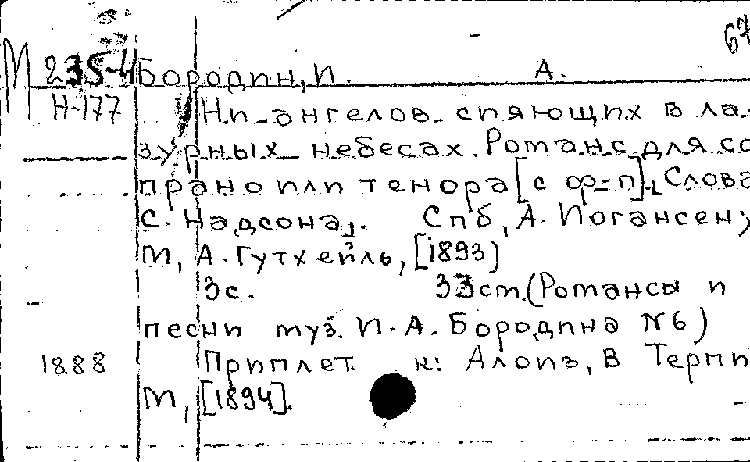 67
М 235-4 Бородин, И. А.
Н-177 Ни ангелов спящих в ла-
зурных небесах. Романс для со
прано или тенора [с ф-п]. Слова
С. Надсона. Спб, А. Иогансен;
М, А. Гутхейль, [1893]
3с. 33см. (Романсы и
песни муз. И. А. Бородина №6)
1888 Приплет. к: Алоиз, В Терпи
М, [1894].